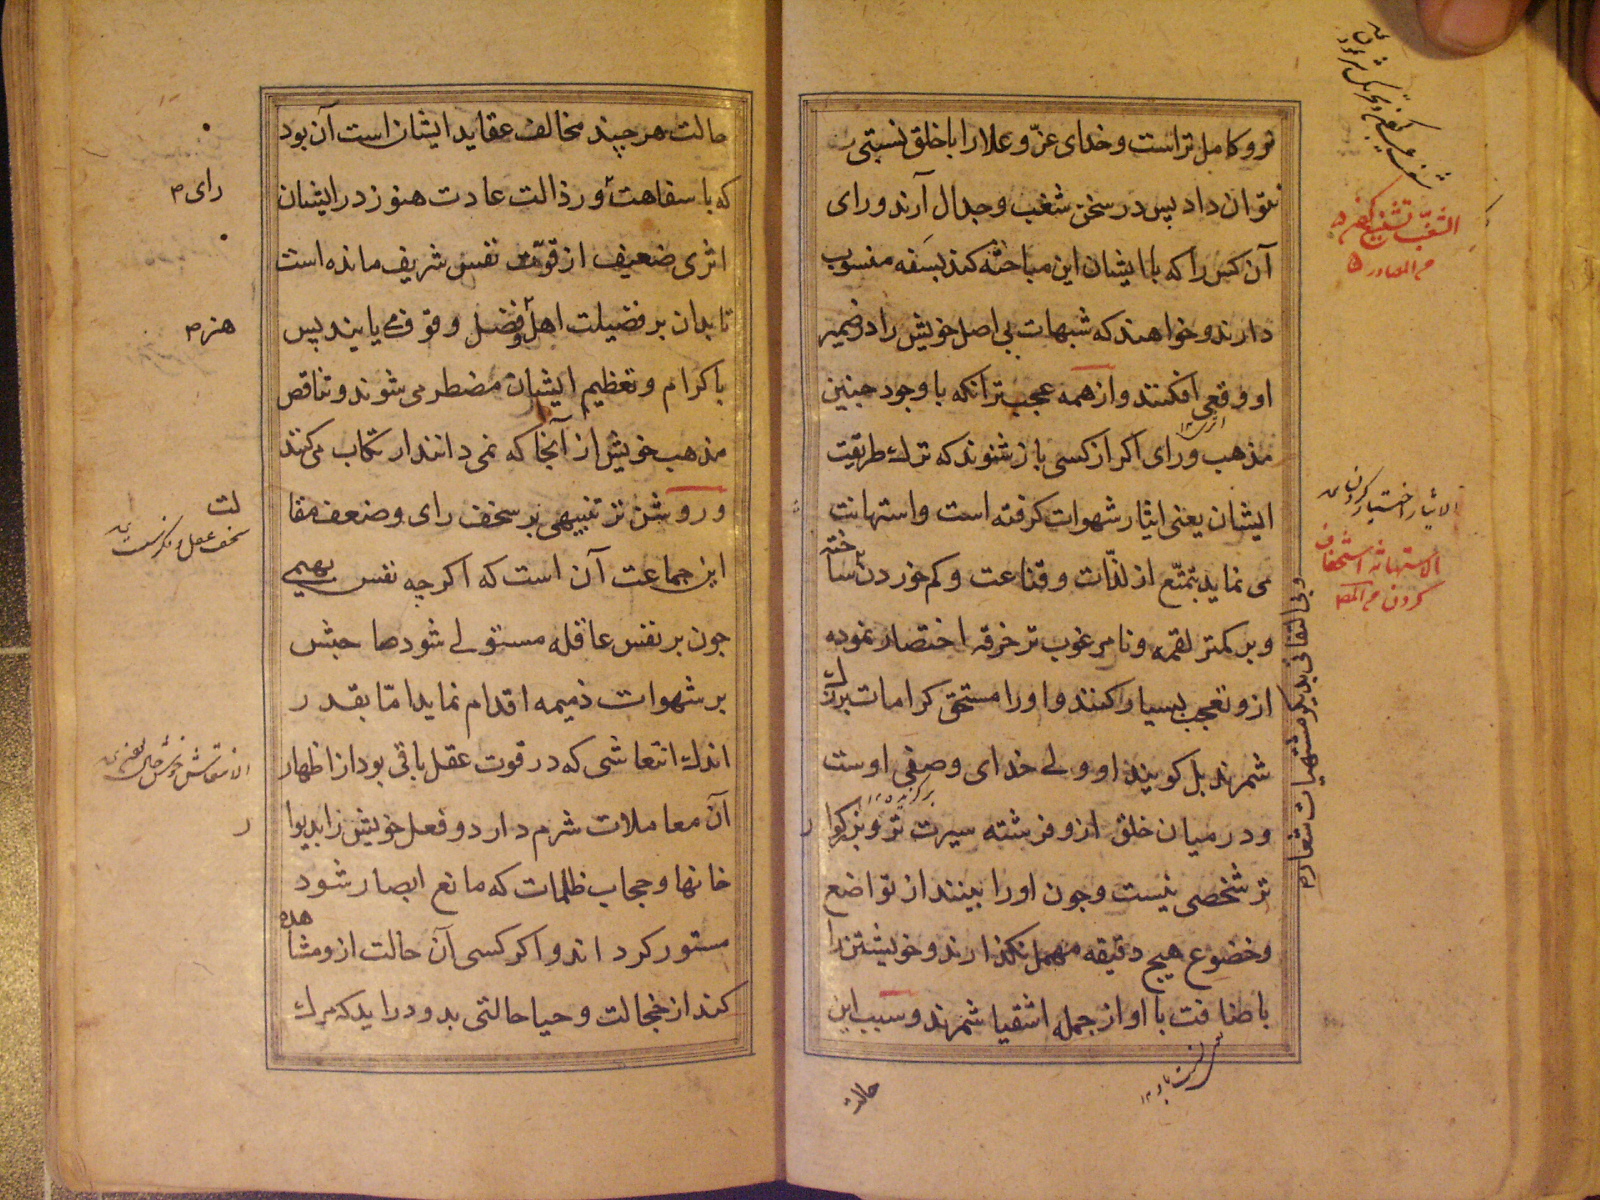 تر و کامل تر است و خدای عزّ و علا را با خلق نسبتی
نتوان داد پس در سخن شغب و جدال آرند و رای
آن کس را که با ایشان این مباحثه کند بسَفَه منسوب
دارند و خواهند که شبهات بی اصل خویش را در ضمیر
او وقعی افکنند و از همه عجب تر انکه با وجود چنین
مذهب و رای اکر از کسی باز شنوند که ترک طریقت
ایشان یعنی ایثار شهوات کرفته است و استهانت
می نماید بتمتّع از لذّات و قناعت و کم خوردن ساخته
و بر کمتر لقمه و نامرغوب تر خرقه اختصار نموده
ازو تعجب بسیار کنند و او را مستحق کرامات بزرک
شمرند بل کویند او ولی خدای و صفی اوست
و در میان خلق ازو فرشته سیرت تر و بزرکوار
تر شخصی نیست و چون او را بینند از تواضع
و خضوع هیچ دقیقه مهمل نکذارند و خویشتن را
باضافت با او از جمله اشقیا شمرند و سبب این
حالت
الشغب
من المصادر
الایثار اختیار کردن
الاستهانة استخفاف
کردن
حالت هر چند مخالف عقاید ایشان است آن بود
که با سفاهت و رذالت عادت هنوز در ایشان
اثری ضعیف از قوّت نفس شریف مانده است
تا بدان بر فضیلت اهل فضل وقوف می یابند پس
باکرام و تعظیم ایشان مضطر می شوند و تناقض
مذهب خویش از آنجا که نمی دانند ارتکاب می کنند
و روشن تر تنبیهی بر سخف رای و ضعف مقالت
این جماعت آن است که اکر چه نفس بهیمی
چون بر نفس عاقله مستولی شود صاحبش
بر شهوات ذمیمه اقدام نماید امّا بقدر
اندک انتعاشی که در قوت عقل باقی بود از اظهار
آن معاملات شرم دارد و فعل خویش را بدیوار
خانها و حجاب ظلمات که مانع ابصار شود
مستور کرداند و اکر کسی آن حالت ازو مشاهده
کند از خجالت و حیا حالتی بدو دراید که مرک
رای
هنر